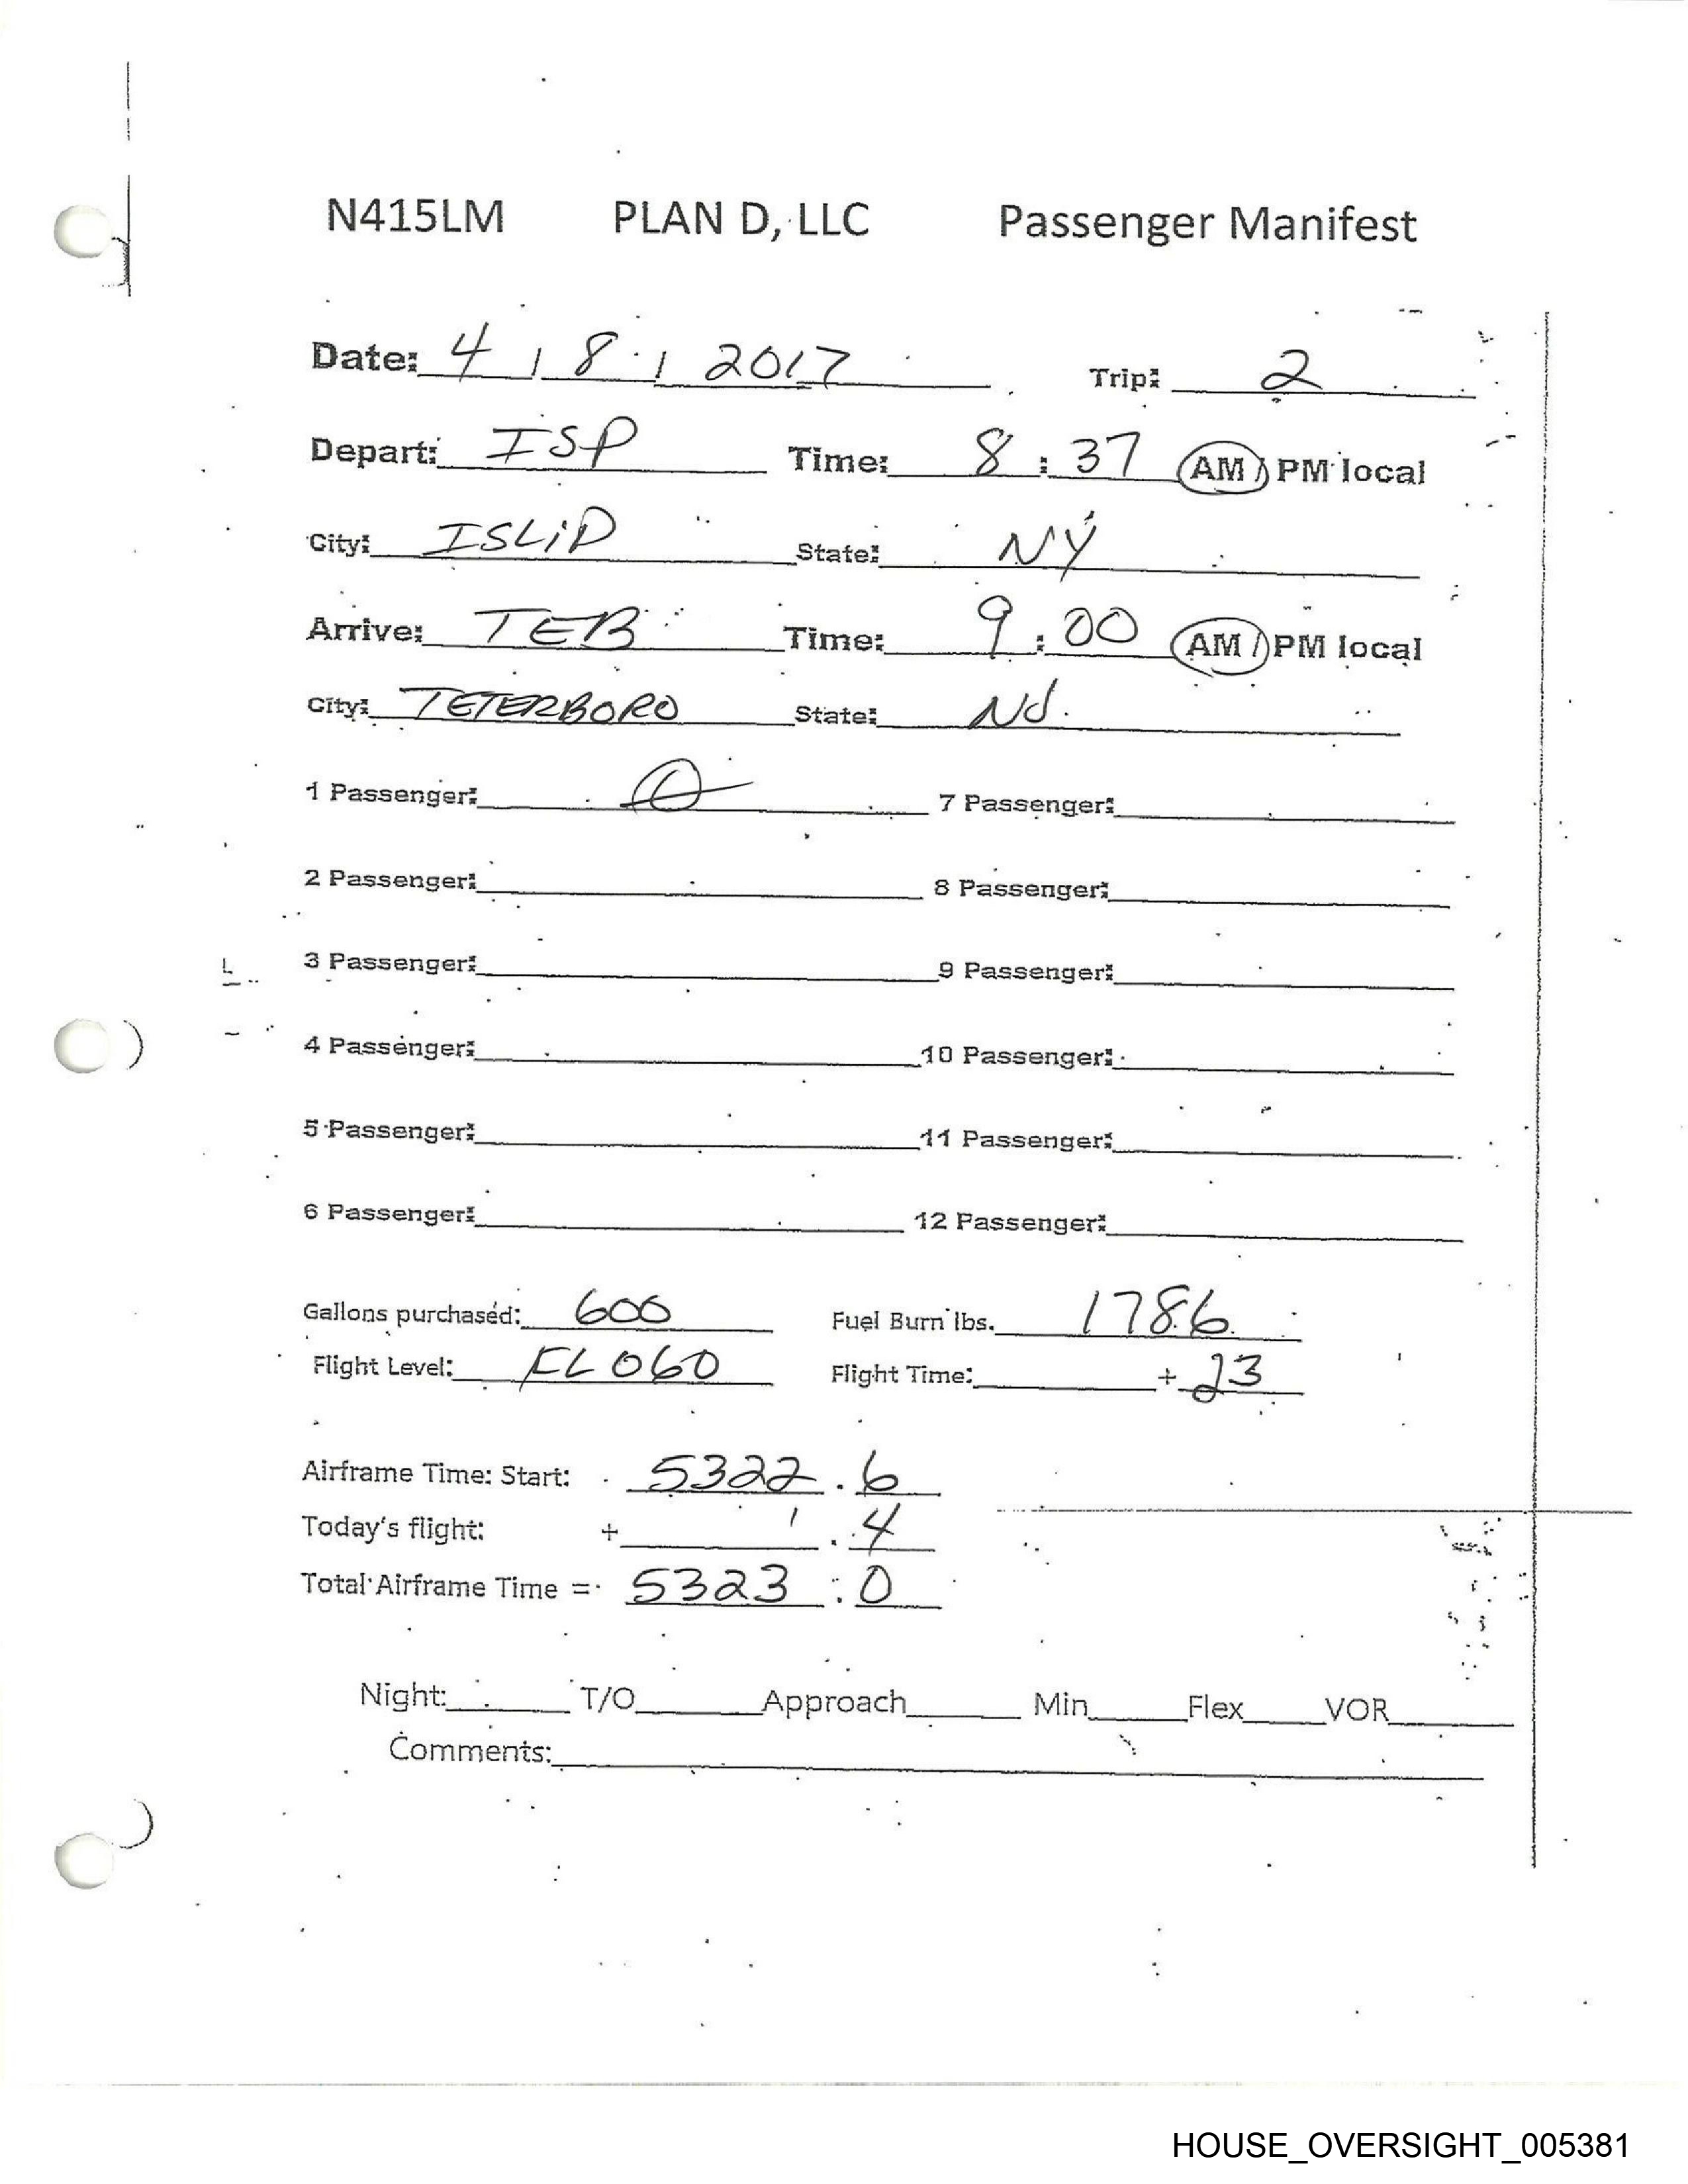 N415LM PLAN D, LLC Passenger Manifest
Date: 4 / 8 / 2017 Trip: 2
Depart: ISP Time: 8:37 AM / PM local
City: ISLiP State: NY
Arrive: TEB Time: 9:00 AM / PM local
City: TETERBORO State: NJ
1 Passenger: 0 7 Passenger:
2 Passenger: 8 Passenger:
3 Passenger: 9 Passenger:
4 Passenger: 10 Passenger:
5 Passenger: 11 Passenger:
6 Passenger: 12 Passenger:
Gallons purchased: 600 Fuel Burn lbs. 1786
Flight Level: FL 060 Flight Time: + 23
Airframe Time: Start: 5322.6
Today's flight: + .4
Total Airframe Time = 5323.0
Night: T/O Approach Min Flex VOR
Comments:
HOUSE_OVERSIGHT_005381